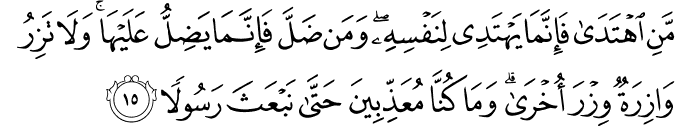 مَّنِ ٱهۡتَدَىٰ فَإِنَّمَا يَهۡتَدِي لِنَفۡسِهِۦۖ وَمَن ضَلَّ فَإِنَّمَا يَضِلُّ عَلَيۡهَاۚ وَلَا تَزِرُ
وَازِرَةٞ وِزۡرَ أُخۡرَىٰۗ وَمَا كُنَّا مُعَذِّبِينَ حَتَّىٰ نَبۡعَثَ رَسُولٗا ١٥